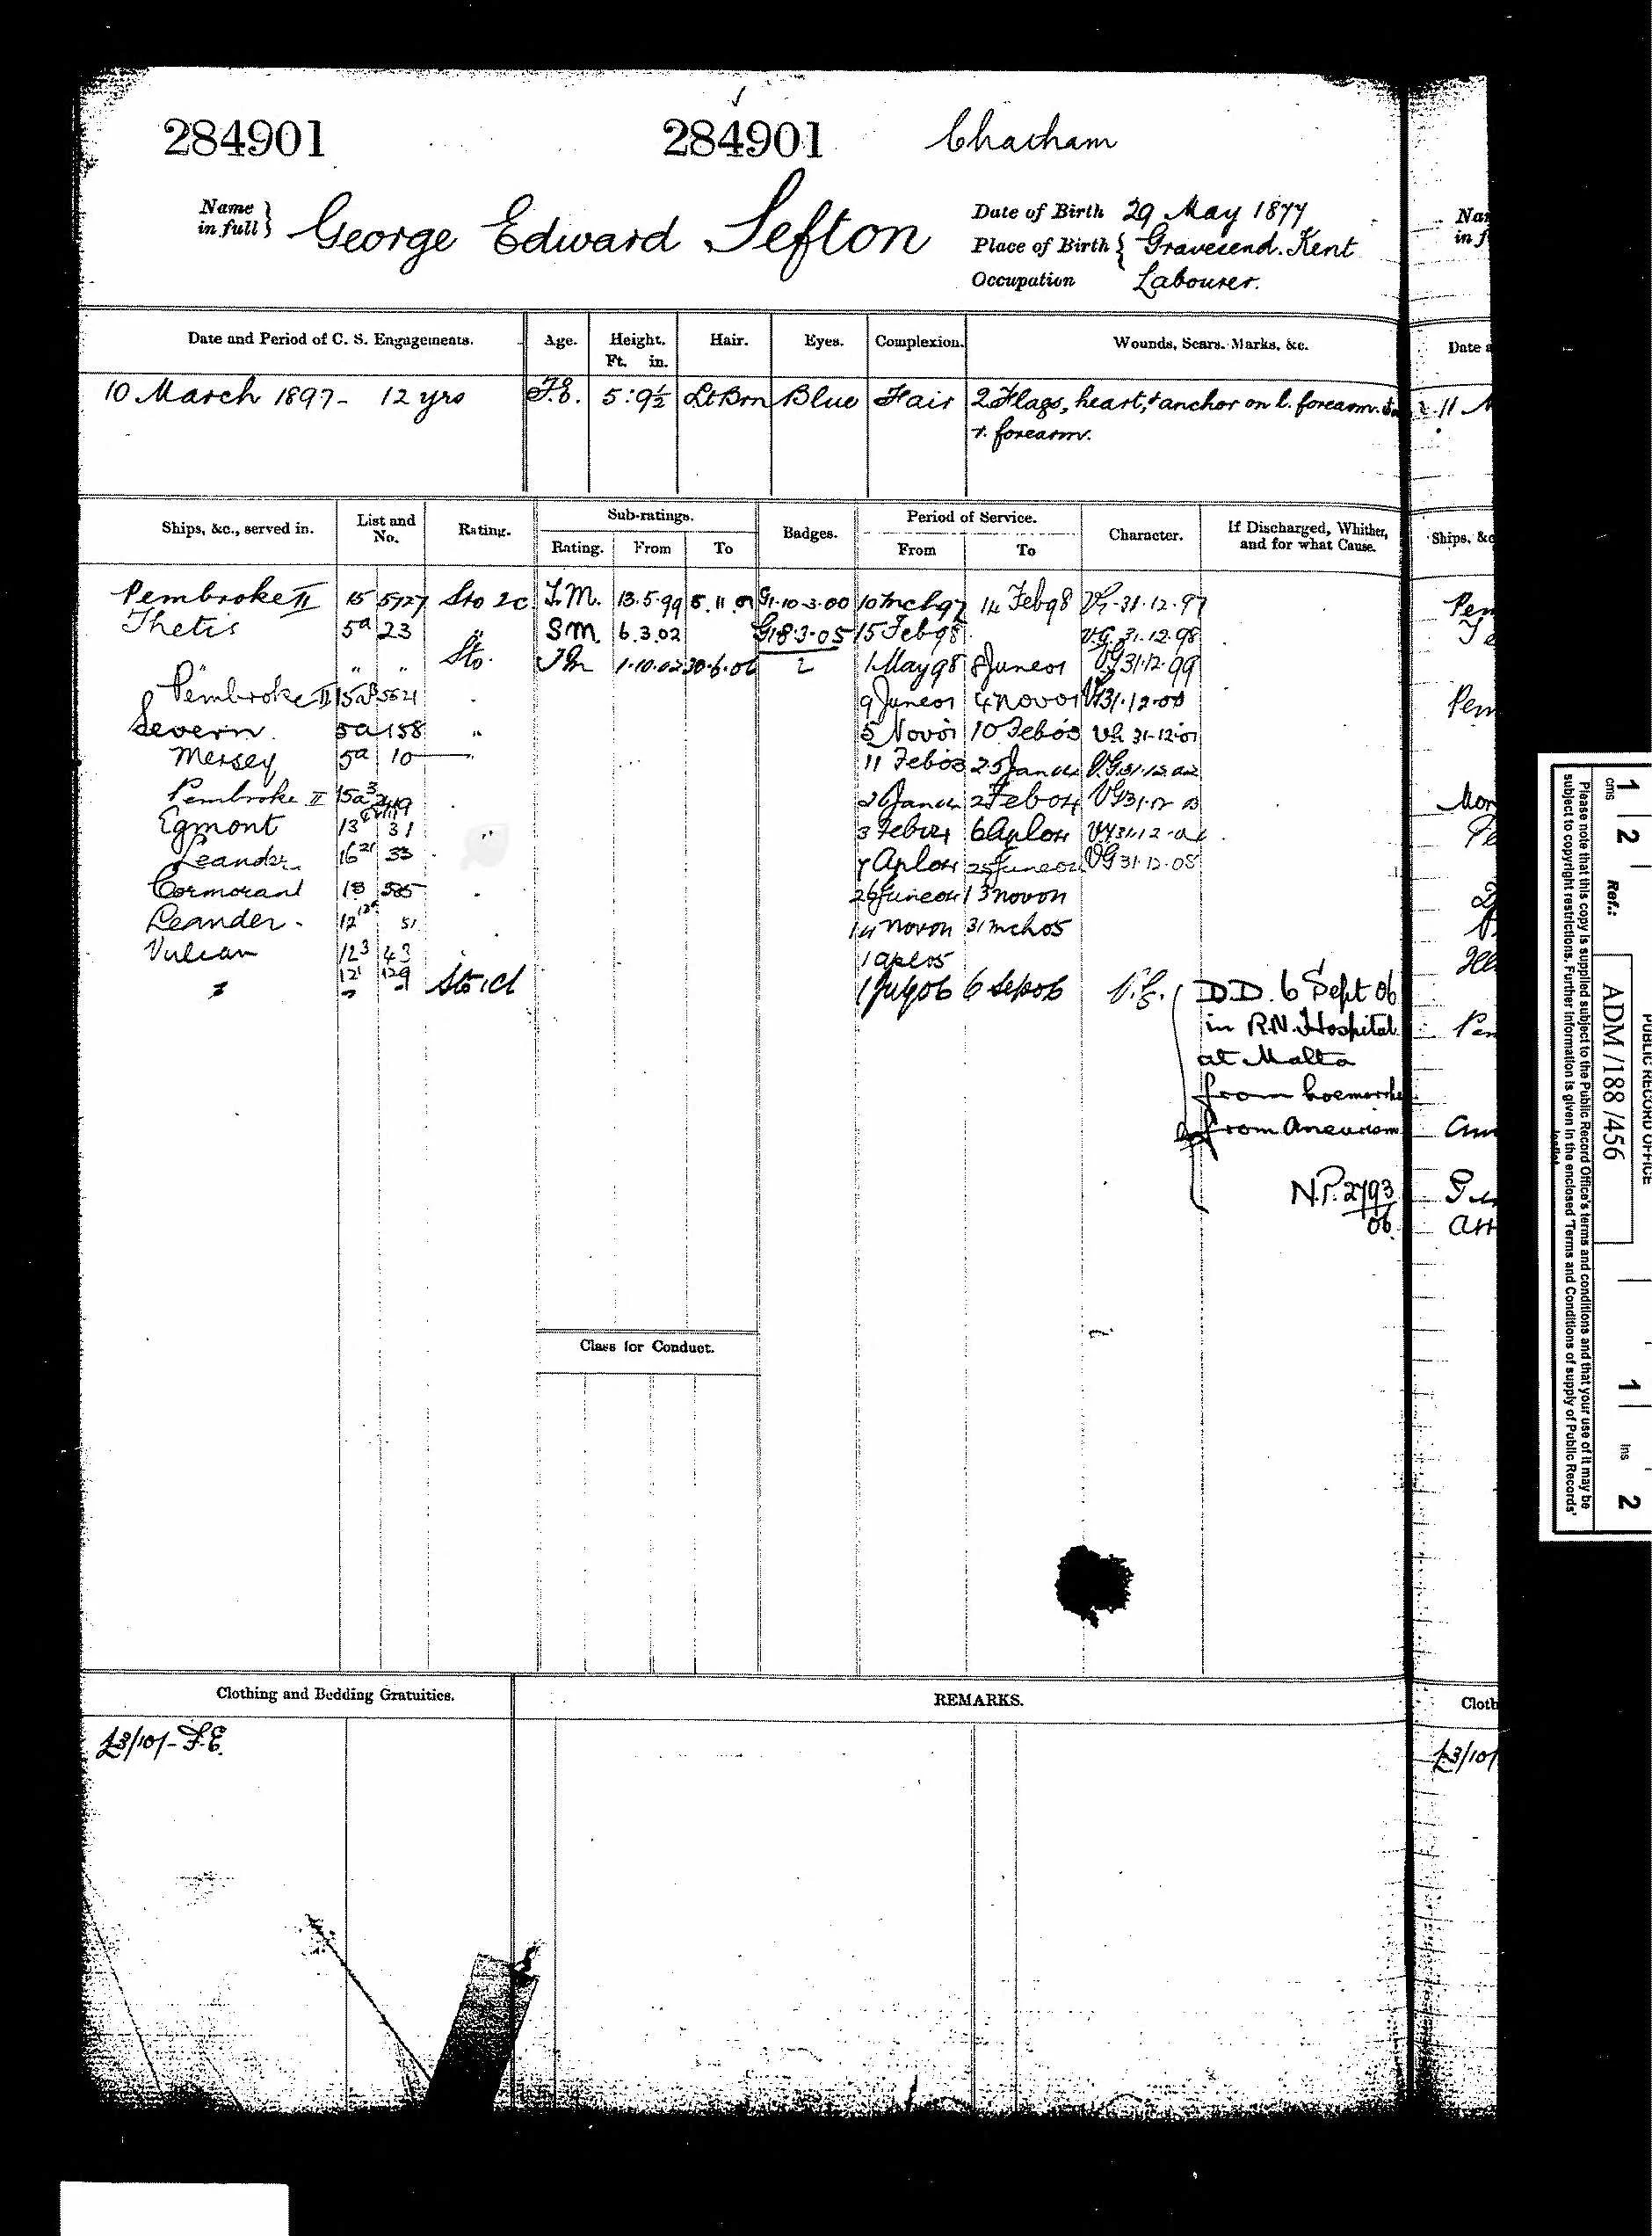 284901 284901 Chatham
Name in full } George Edward Sefton
Date of Birth 29 May 1877
Place of Birth { Gravesend. Kent
Occupation Labourer.
Date and Period of C. S. Engagements. Age. Height. Ft. in. Hair. Eyes. Complexion. Wounds, Scars. Marks, &c.
10 March 1897 - 12 yrs F.E. 5:9½ Lt Brn Blue Fair 2 Flags, heart, + anchor on l. forearm.
r. forearm.
Ships, &c., served in. List and No. Rating. Sub-ratings. Badges. Period of Service. Character. If Discharged, Whither, and for what Cause.
Rating. From To From To
Pembroke II 15 5727 Sto 2c T.M. 13.5.99 5.11.01 G1.10.3.00 10 Mch 97 14 Feb 98 VG-31.12.97
Thetis 5a 23 " S.M. 6.3.02 G1 8.3.05 15 Feb 98 V.G. 31.12.98
" " " Sto. 1.10.02 30.6.06 2 1 May 98 8 June 01 VG 31.12.99
Pembroke II 9 June 01 4 Nov 01 VG 31.12.00
Severn. 5a 158 " 5 Nov 01 10 Feb 03 VG 31-12-01
Mersey 5a 10 11 Feb 03 25 Jan 04 V.G 31.12.02
Pembroke II 15a3 26 Jan 04 2 Feb 04 VG 31.12.03
Egmont 13 31 " 3 Feb 04 6 Apl 04 VG 31.12.04
Leander 16 33 7 Apl 04 25 June 04 VG 31.12.05
Cormorant 13 26 June 04 13 Nov 04
Leander. 12 51 14 Nov 04 31 Mch 05
Vulcan 12 3 43 1 Apl 05
12 1 129
" " " Sto 1 Cl 1 July 06 6 Sep 06 V.G. D.D. 6 Sept 06
in R.N. Hospital
at Malta
from
from Aneurism
N.P. 2793/06.
Class for Conduct.
Clothing and Bedding Gratuities. REMARKS.
£3/10/- F.E.
Name
in f
Date a
11 M
Ships, &c
Pem
Cloth
£3/10/
1 2 1 2
cms ins
Ref.: ADM/188/456
PUBLIC RECORD OFFICE
Please note that this copy is supplied subject to the Public Record Office's terms and conditions and that your use of it may be
subject to copyright restrictions. Further information is given in the enclosed 'Terms and Conditions of supply of Public Records'